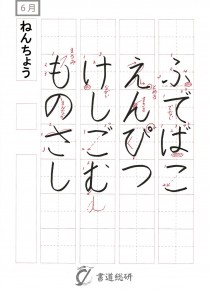 6月
ねんちょう
ふでばこ
えんぴつ
けしごむ
ものさし
書道総研